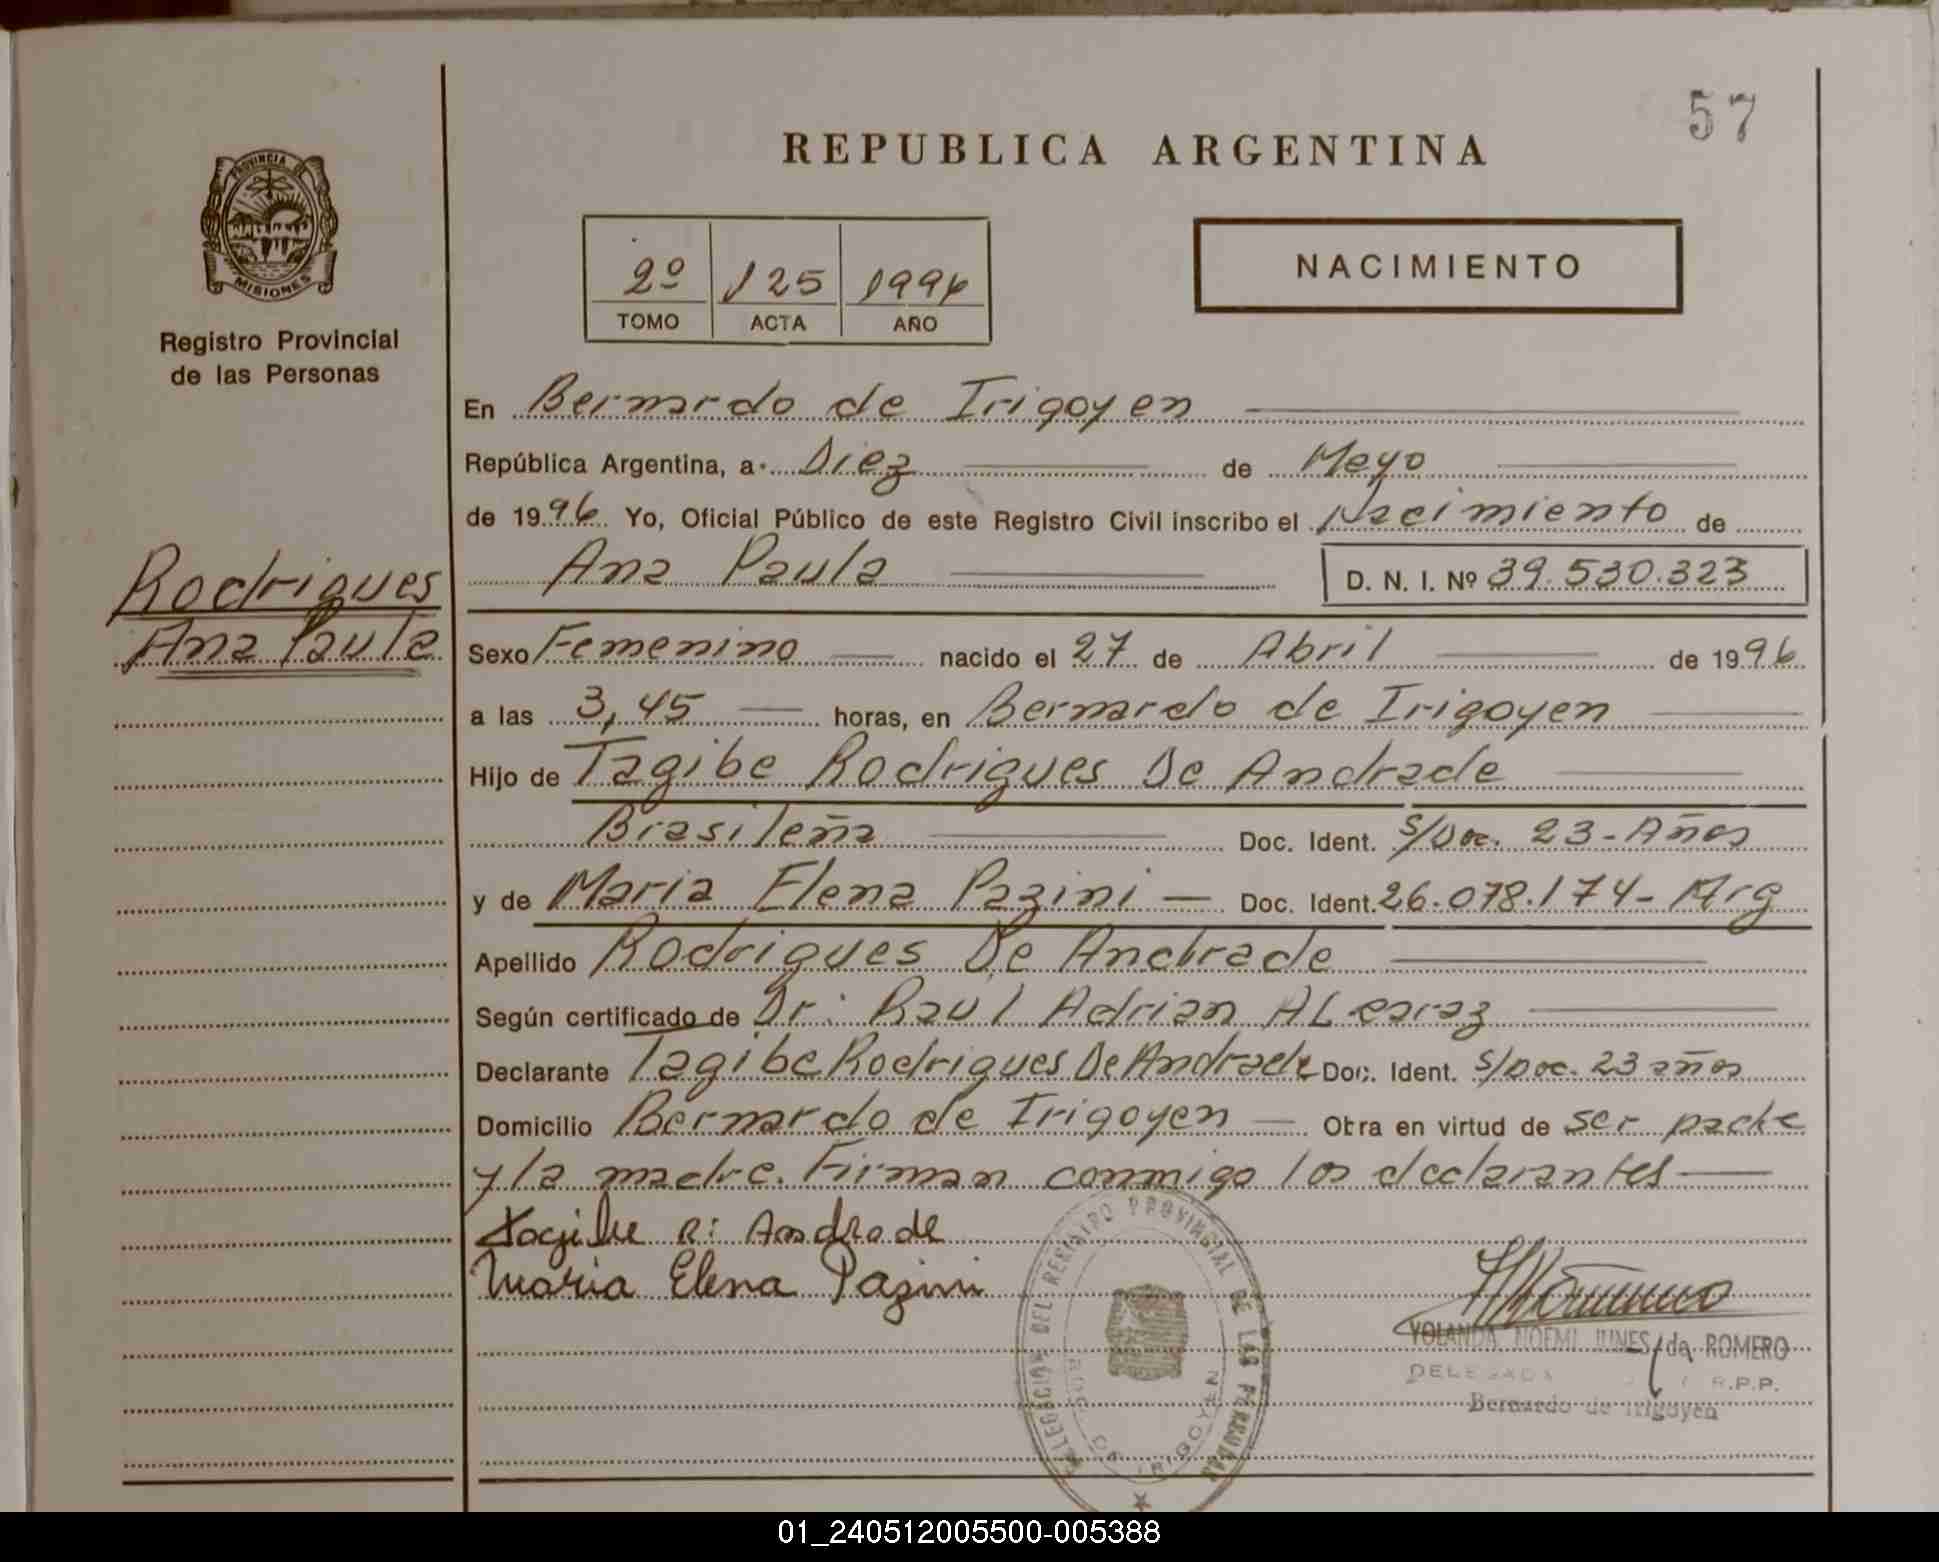 57
REPUBLICA ARGENTINA
PROVINCIA DE
MISIONES
Registro Provincial
de las Personas
2º 125 1996
TOMO ACTA AÑO
NACIMIENTO
En Bernardo de Irigoyen
República Argentina, a Diez de Mayo
de 1996 Yo, Oficial Público de este Registro Civil inscribo el Nacimiento de
Ana Paula D. N. I. Nº 39.530.323
Rodrigues
Ana Paula
Sexo Femenino nacido el 27 de Abril de 1996
a las 3,45 horas, en Bernardo de Irigoyen
Hijo de Tagibe Rodrigues De Andrade
Brasileña Doc. Ident. S/Doc. 23-Años
y de Maria Elena Pazini Doc. Ident. 26.078.174- Arg
Apellido Rodrigues De Andrade
Según certificado de Dr: Raul Adrian ALcaraz
Declarante Tagibe Rodrigues De Andrade Doc. Ident. S/Doc. 23 años
Domicilio Bernardo de Irigoyen Obra en virtud de ser padre
y la madre. Firman conmigo los declarantes
Tagibe R: Andrade
Maria Elena Pazini
DELEGACION DEL REGISTRO PROVINCIAL DE LAS PERSONAS
BDO. DE IRIGOYEN
YOLANDA NOEMI JUNES de ROMERO
DELEGADA R.P.P.
Bernardo de Irigoyen
01_240512005500-005388